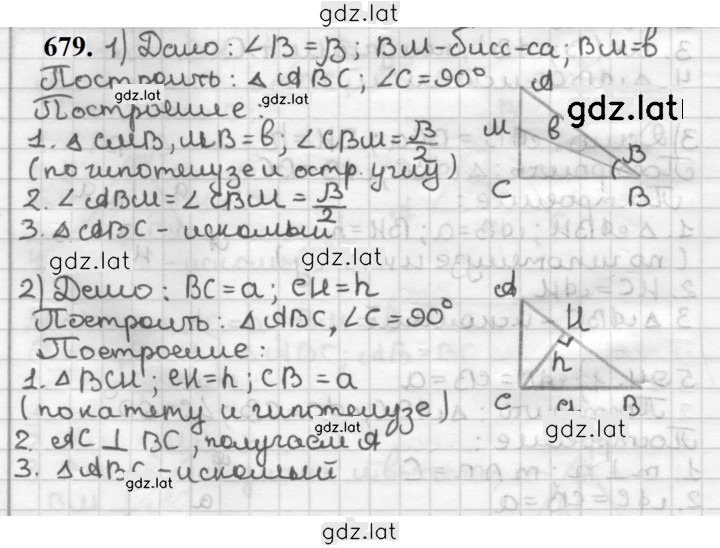 gdz.lat
679. 1) Дано: ∠B = β; BM - бисс-са; BM = b
Построить: △ ABC; ∠C = 90°
gdz.lat
gdz.lat
Построение:
1. △ CMB, MB = b; ∠CBM = β/2
(по гипотенузе и остр. углу)
2. ∠ABM = ∠CBM = β/2
3. △ ABC - искомый
A
gdz.lat
M
b
β
C
B
gdz.lat
gdz.lat
2) Дано: BC = a; CH = h
Построить: △ ABC, ∠C = 90°
Построение:
1. △ BCH; CH = h; CB = a
(по катету и гипотенузе)
gdz.lat
2. AC ⊥ BC, получаем A
3. △ ABC - искомый
gdz.lat
A
H
h
C
a
B
gdz.lat
gdz.lat